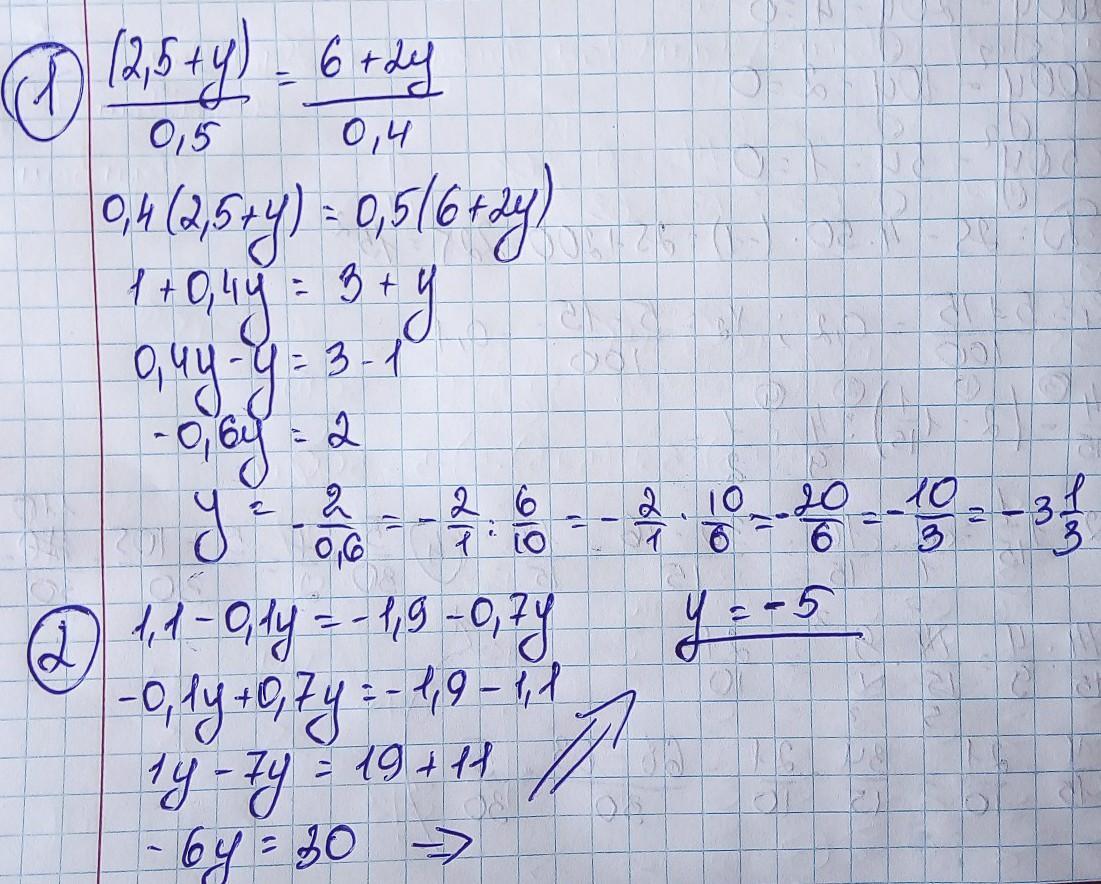 1 (2,5+y)/0,5 = 6+2y/0,4
0,4(2,5+y) = 0,5(6+2y)
1+0,4y = 3+y
0,4y-y = 3-1
-0,6y = 2
y = -2/0,6 = -2/1 : 6/10 = -2/1 · 10/6 = -20/6 = -10/3 = -3 1/3
2 1,1-0,1y = -1,9-0,7y y = -5
-0,1y+0,7y = -1,9-1,1
1y-7y = 19+11
-6y = 30 ⇒